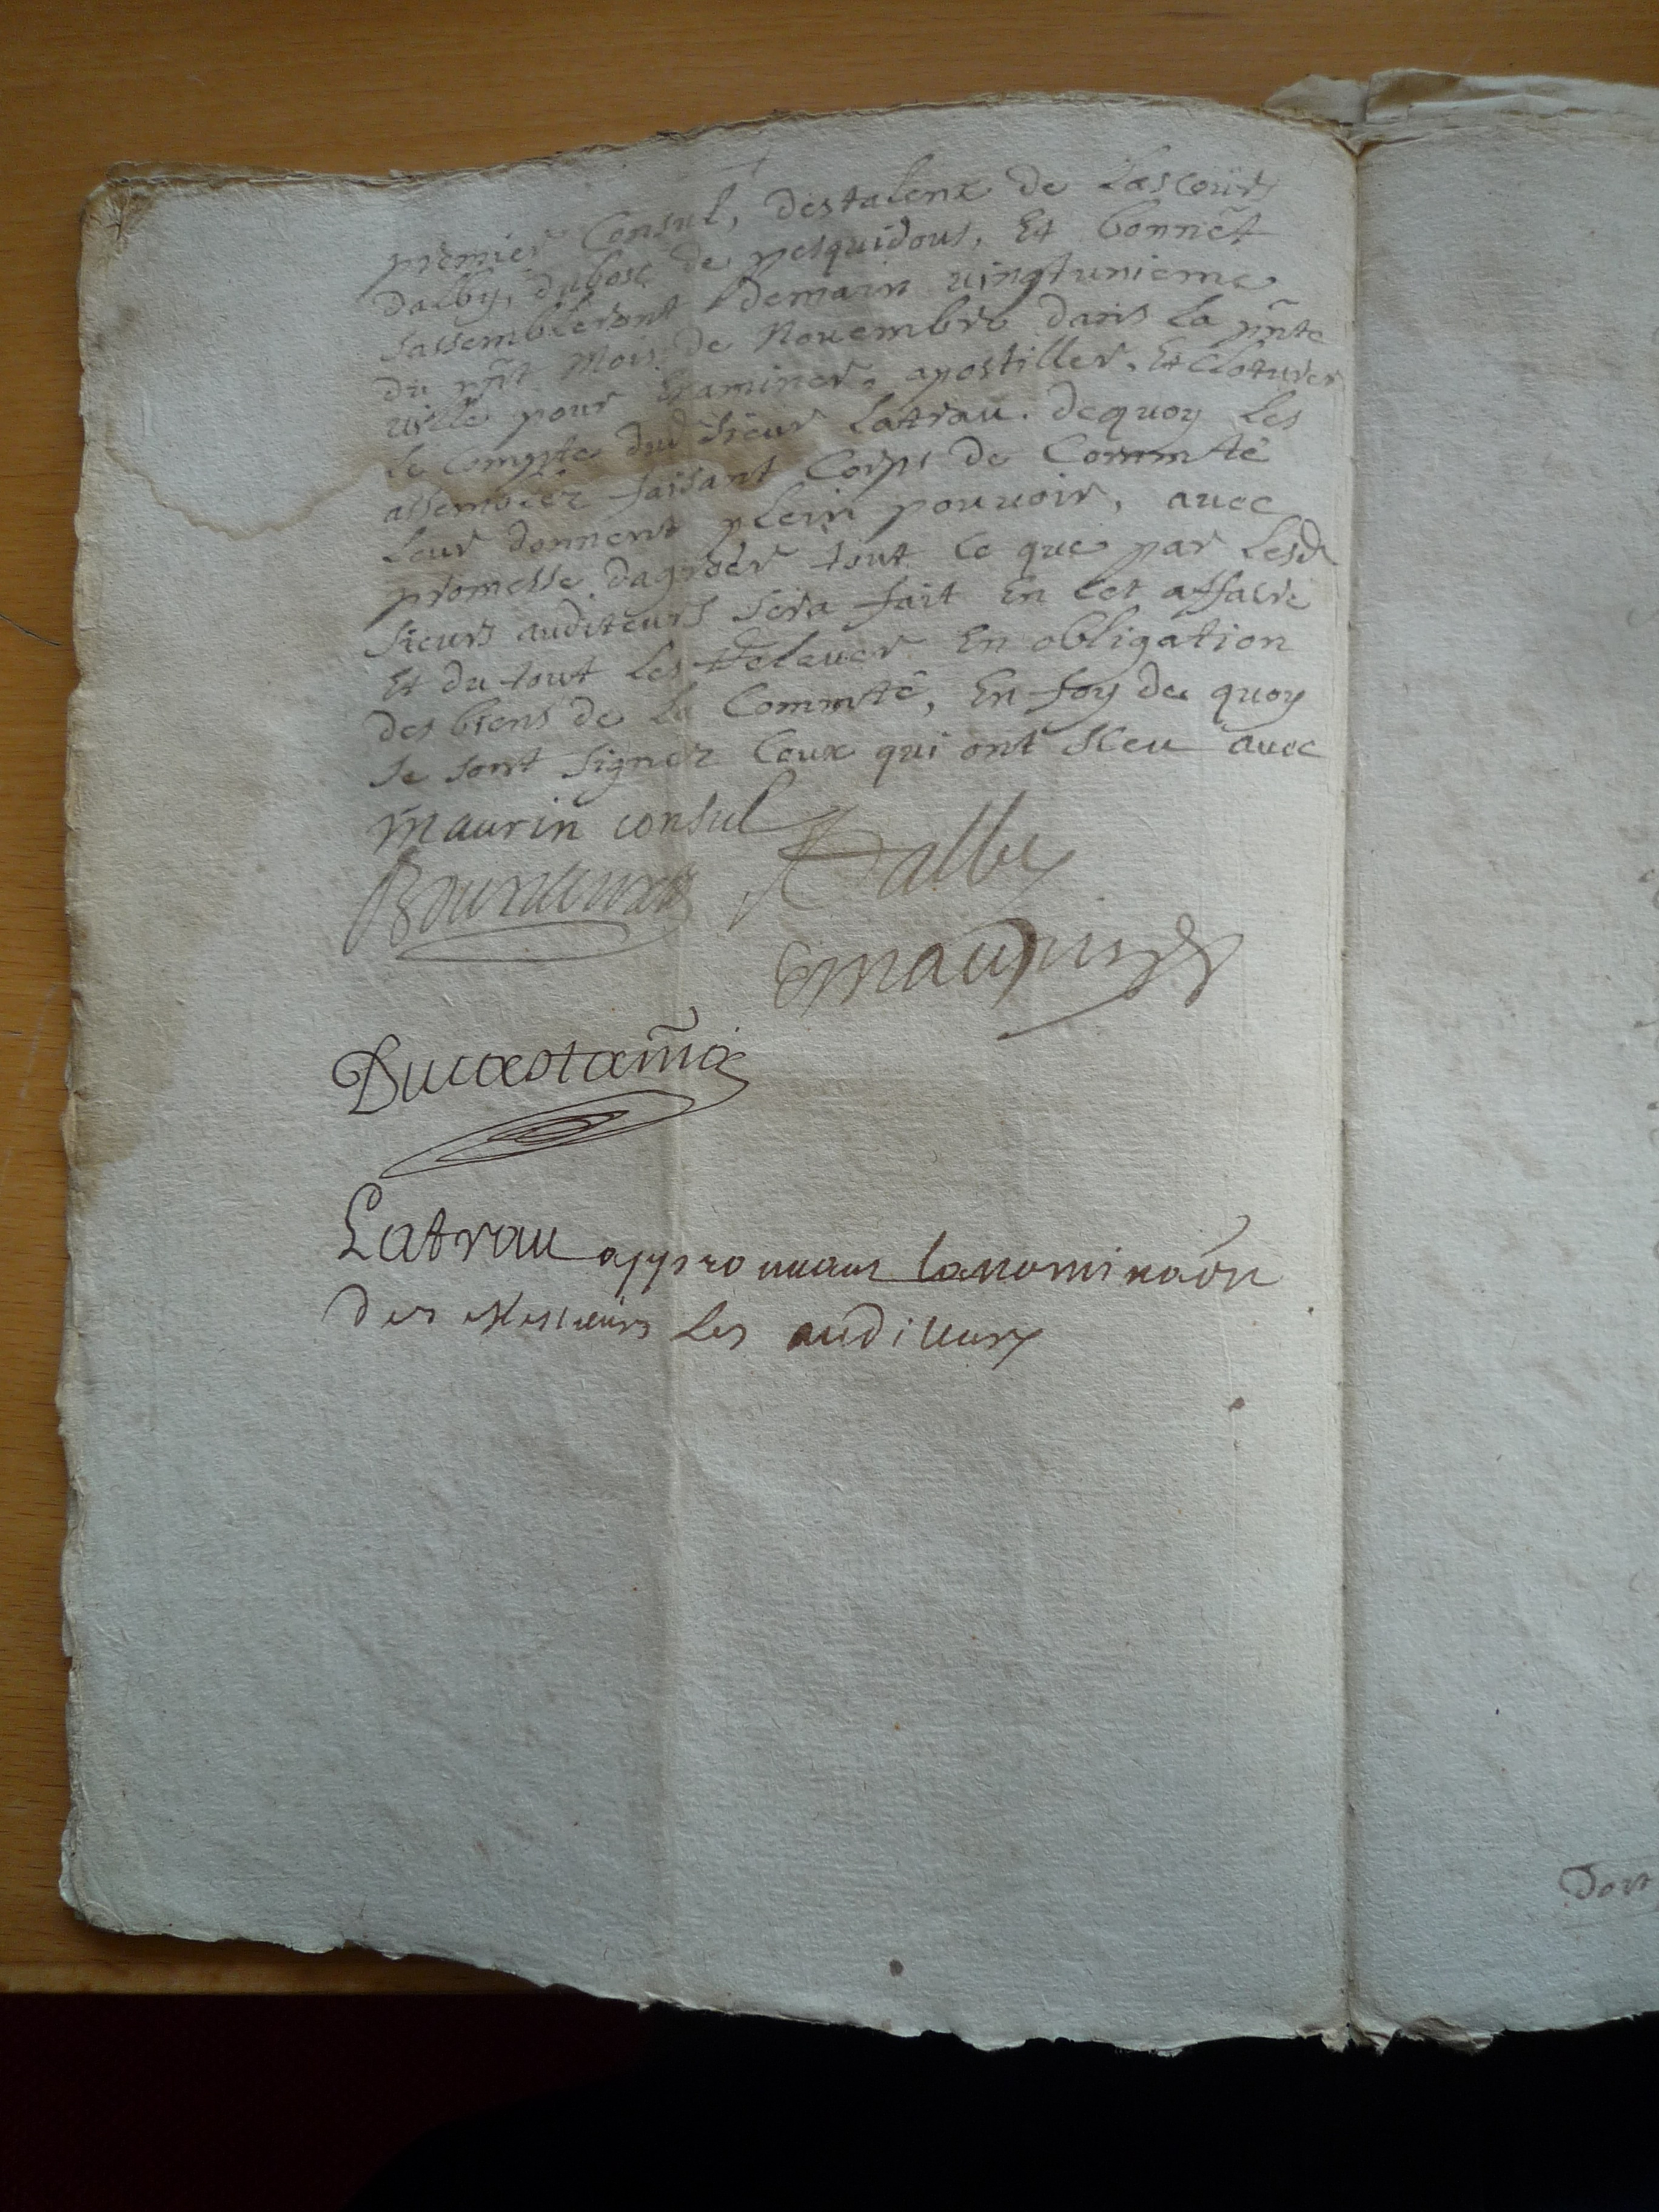 premier Consul, destalenx de Lascours
dalby, dubosc de pesquidous, Et bonnet
sassembleront demain vingtunieme
du pñt Mois de Nouembre dans la pñte
uille pour Examiner, apostiller, Et Cloturer
le Compte dud Sieur Latrau. dequoy les
assemblez faisant Corps de Commté
leur donnent plein pouuoir, auec
promesse dagréér tout ce que par lesd
sieurs auditeurs sera fait En cet affaire
Et du tout les Releuer En obligation
des biens de la Commté, En foy de quoy
se sont signez Ceux qui ont sceu auec
maurin consul
Dalby
maurin
Latrau approuuant la nominaõn
des Messieurs les auditeurs
Dont